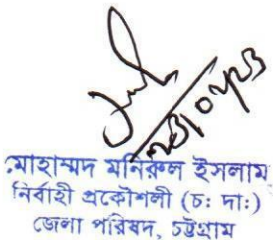 মোহাম্মদ মনিরুল ইসলাম
নির্বাহী প্রকৌশলী (চঃ দাঃ)
জেলা পরিষদ, চট্টগ্রাম